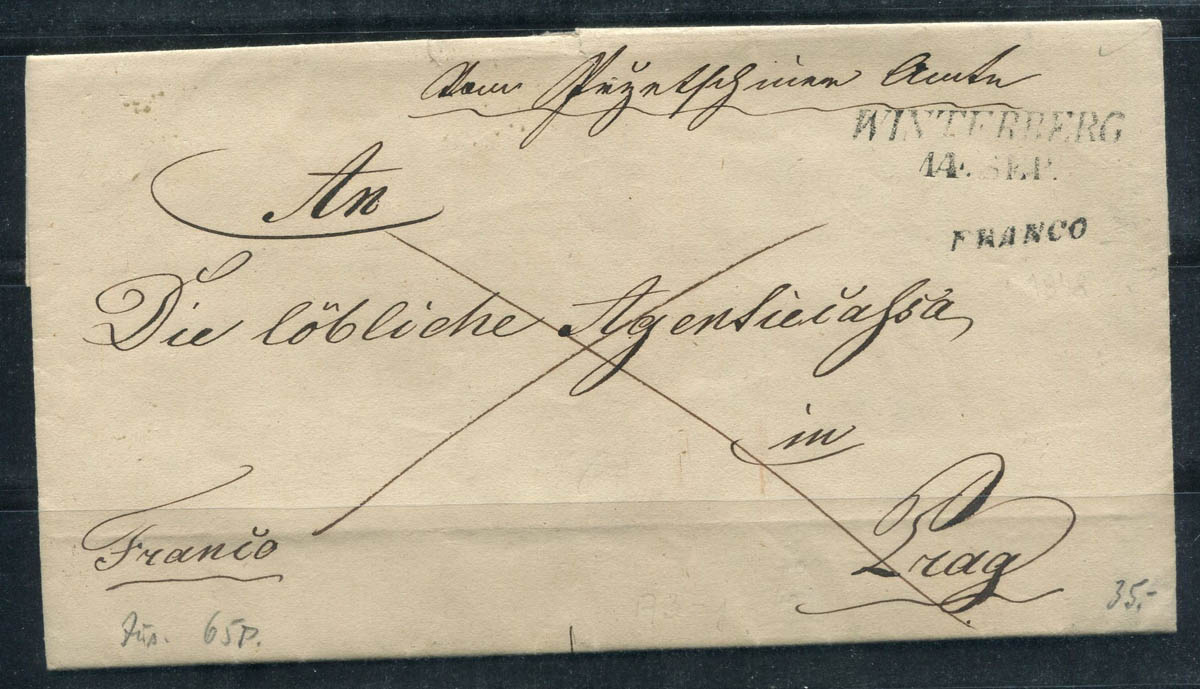 Vom Przetschiner Amte
WINTERBERG
14. SEP.
FRANCO
An
Die löbliche Agentiecassa
in
Prag
Franco
35.-
65P.